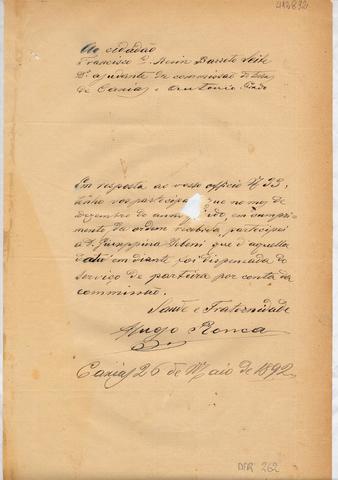 Ao cidadão
Francisco C. Barreto Leite
D. ajudante da commissão de
de Caxias e Antonio Prado
Em resposta ao vosso officio Nº 33,
tenho vos participar que no mez de
Dezembro do anno do, em cumpri-
mento da ordem recebida, participei
a D. Giuseppina que d'aquella
data em diante foi dispensada do
serviço de parteira por conta da
commissão.
Saude e Fraternidade
Hugo Ronca
Caxias 26 de Maio de 1892
DAR 262